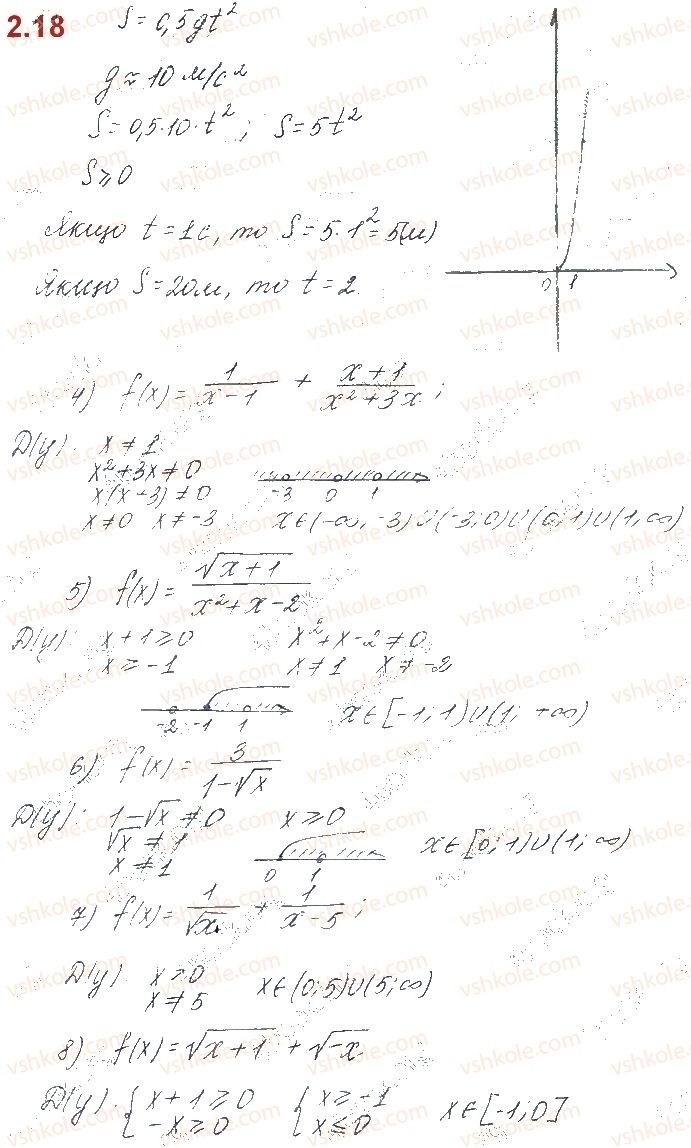 2.18
S = 0,5gt²
g ≈ 10 м/с²
S = 0,5·10·t² ; S = 5t²
S ≥ 0
Якщо t = 1с, то S = 5·1² = 5(м)
Якщо S = 20м, то t = 2
0 1
4) f(x) = 1/(x-1) + (x+1)/(x²+3x) ;
D(y): x ≠ 1
x²+3x ≠ 0
x(x+3) ≠ 0
-3 0 1
x ≠ 0 x ≠ -3 x∈(-∞; -3)∪(-3; 0)∪(0; 1)∪(1; ∞)
5) f(x) = √(x+1)/(x²+x-2)
D(y): x+1 ≥ 0 x²+x-2 ≠ 0
x ≥ -1 x ≠ 1 x ≠ -2
-2 -1 1 x∈[-1; 1)∪(1; +∞)
6) f(x) = 3/(1-√x)
D(y): 1-√x ≠ 0 x ≥ 0
√x ≠ 1
x ≠ 1
0 1 x∈[0; 1)∪(1; ∞)
7) f(x) = 1/√x + 1/(x-5) ;
D(y) x > 0
x ≠ 5 x∈(0; 5)∪(5; ∞)
8) f(x) = √(x+1) + √(-x)
D(y): { x+1 ≥ 0 { x ≥ -1
-x ≥ 0 x ≤ 0 x∈[-1; 0]
vshkole.com